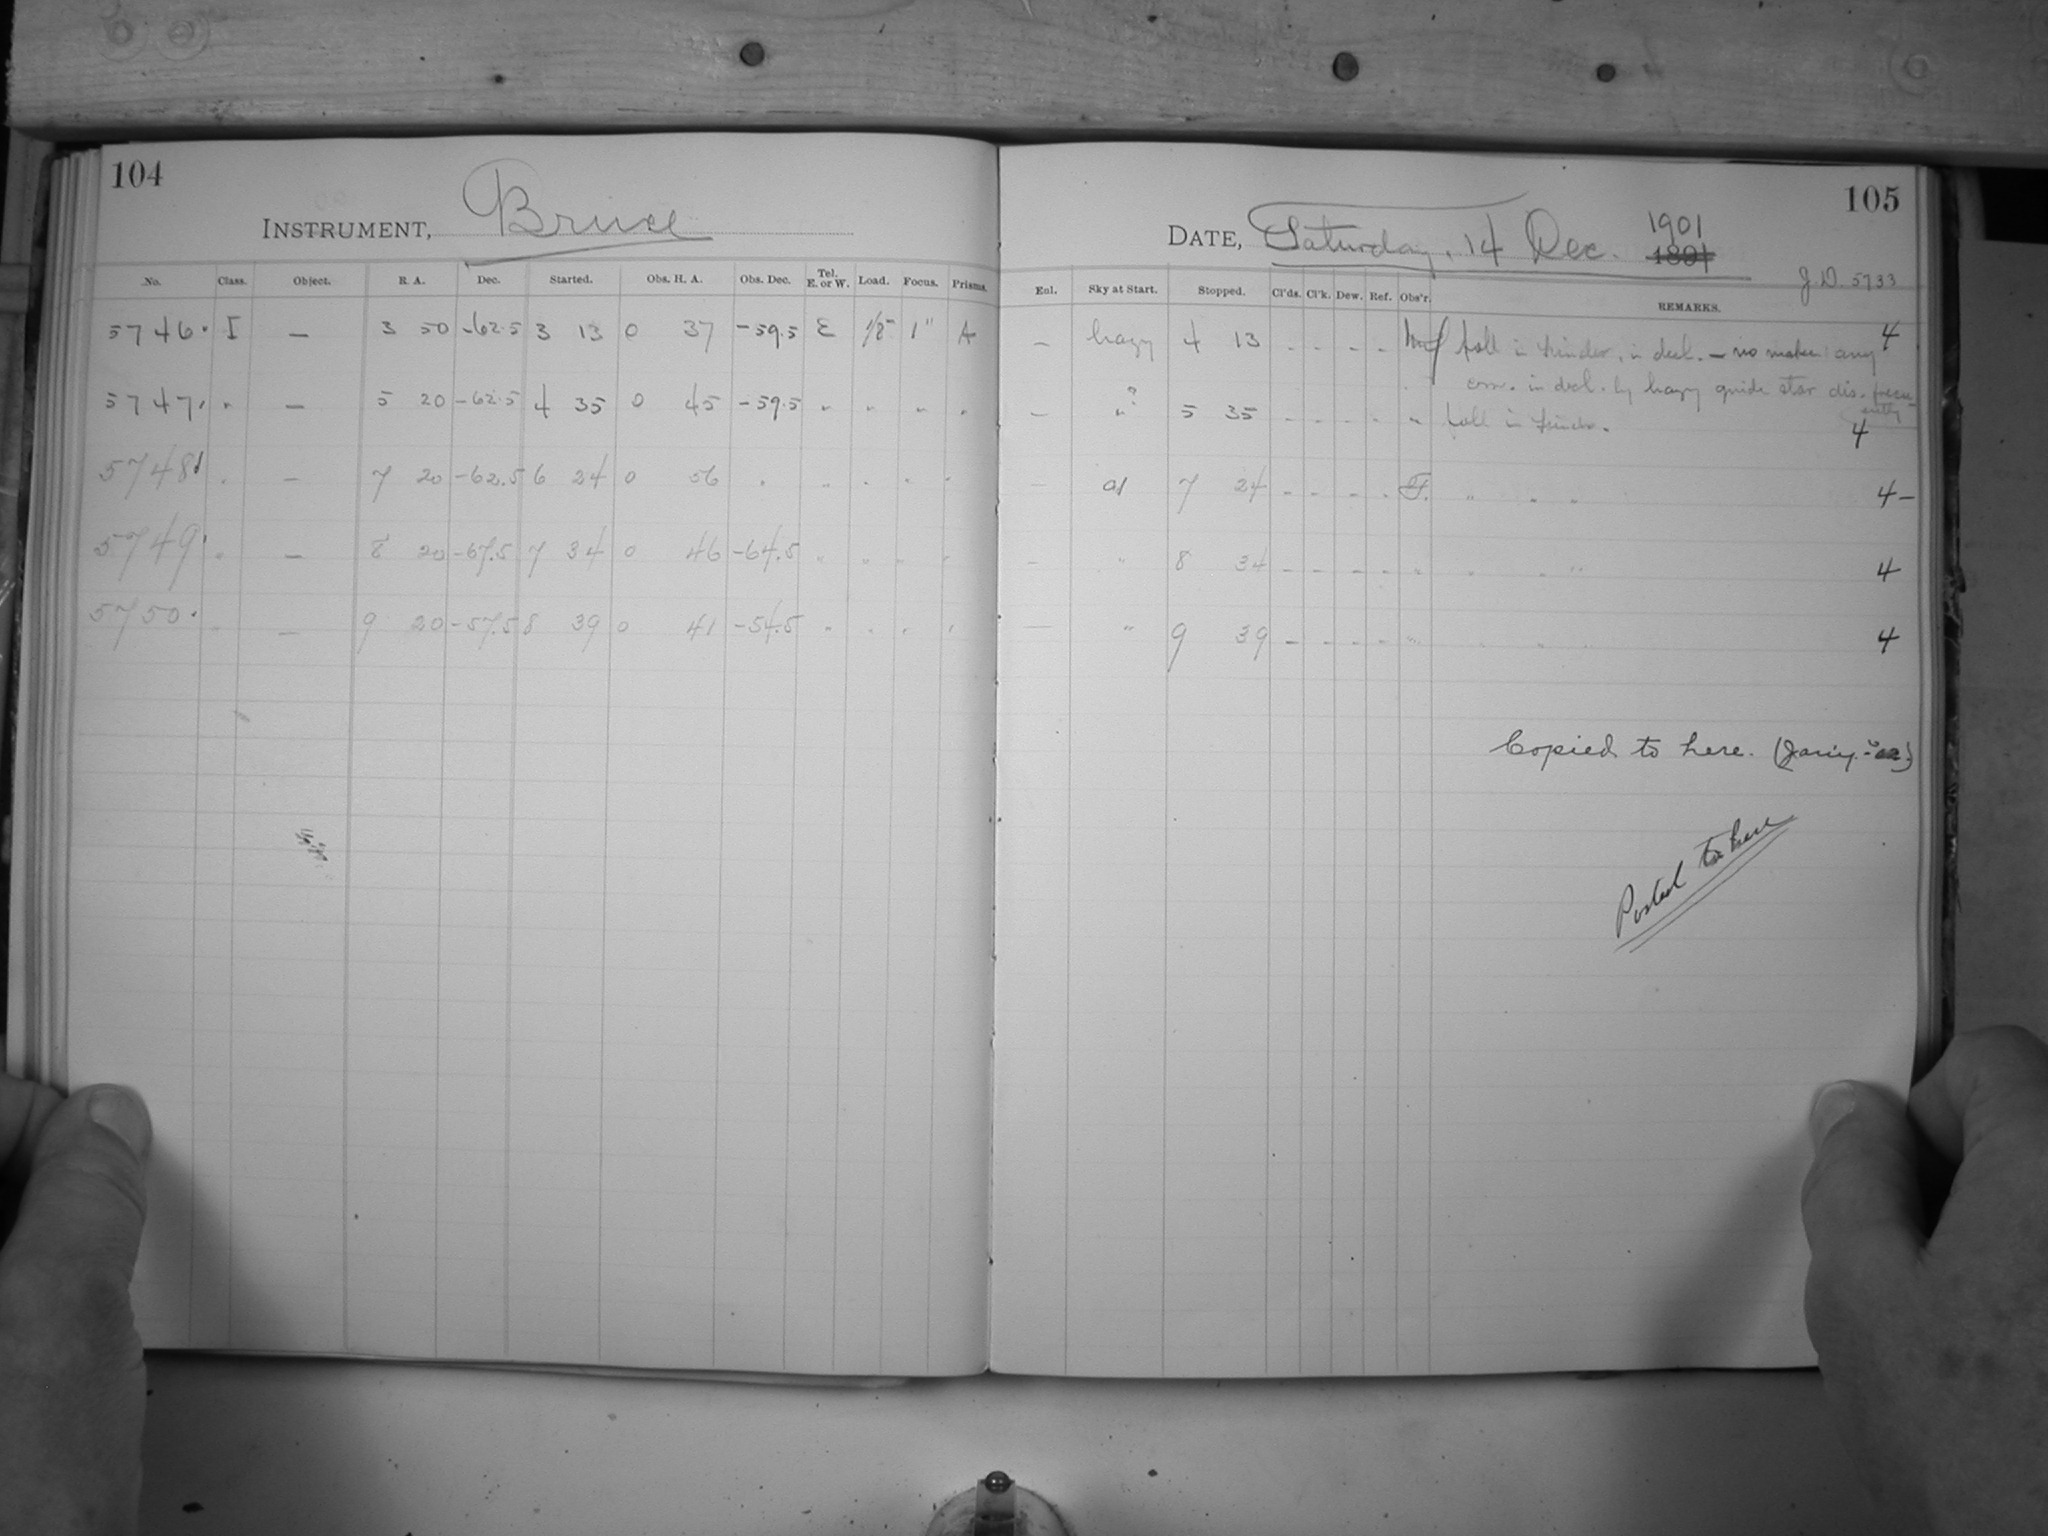 104
INSTRUMENT, Bruce
No. Class. Object. R. A. Dec. Started. Obs. H. A. Obs. Dec. Tel. E. or W. Load. Focus. Prisms.
5746. I — 3 50 -62.5 3 13 0 37 -59.5 E 1/8 1" A
5747. " — 5 20 -62.5 4 35 0 45 -59.5 " " " "
5748 " — 7 20 -62.5 6 24 0 56 " " " " "
5749. " — 8 20 -67.5 7 34 0 46 -64.5 " " " "
5750. " — 9 20 -57.5 8 39 0 41 -54.5 " " " "
105
DATE, Saturday, 14 Dec. 1901
1891
J.D. 5733
Enl. Sky at Start. Stopped. Cl'ds. Cl'k. Dew. Ref. Obs'r. REMARKS.
— hazy 4 13 - - - - foll in finder, in decl. — no 4
corr. in decl. by hazy guide star dis.
— " ? 5 35 - - - - " foll in finder. 4
— 7 24 - - - - " " " 4 –
— " 8 34 - - - - " " " " 4
— " 9 39 - - - - " " " " 4
Copied to here.
Posted to here